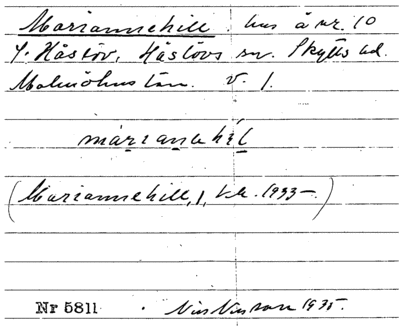 Mariannehill. hus å nr. 10
Y. Håslöv, Håslövs sn. Skytts hd.
Malmöhus län. V. 1.
màrianəhíl
(Mariannehill, 1, t.k. 1933-.)
Nr 5811 . Nils Nilsson 1935.